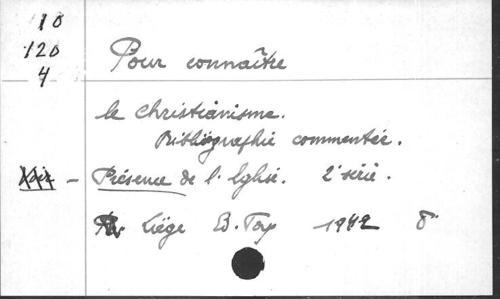 10
120
4
Pour connaître
le christianisme.
Bibliographie commentée.
Voir - Présence de l'Eglise. 2e série.
Liège B. Top 1942 8°